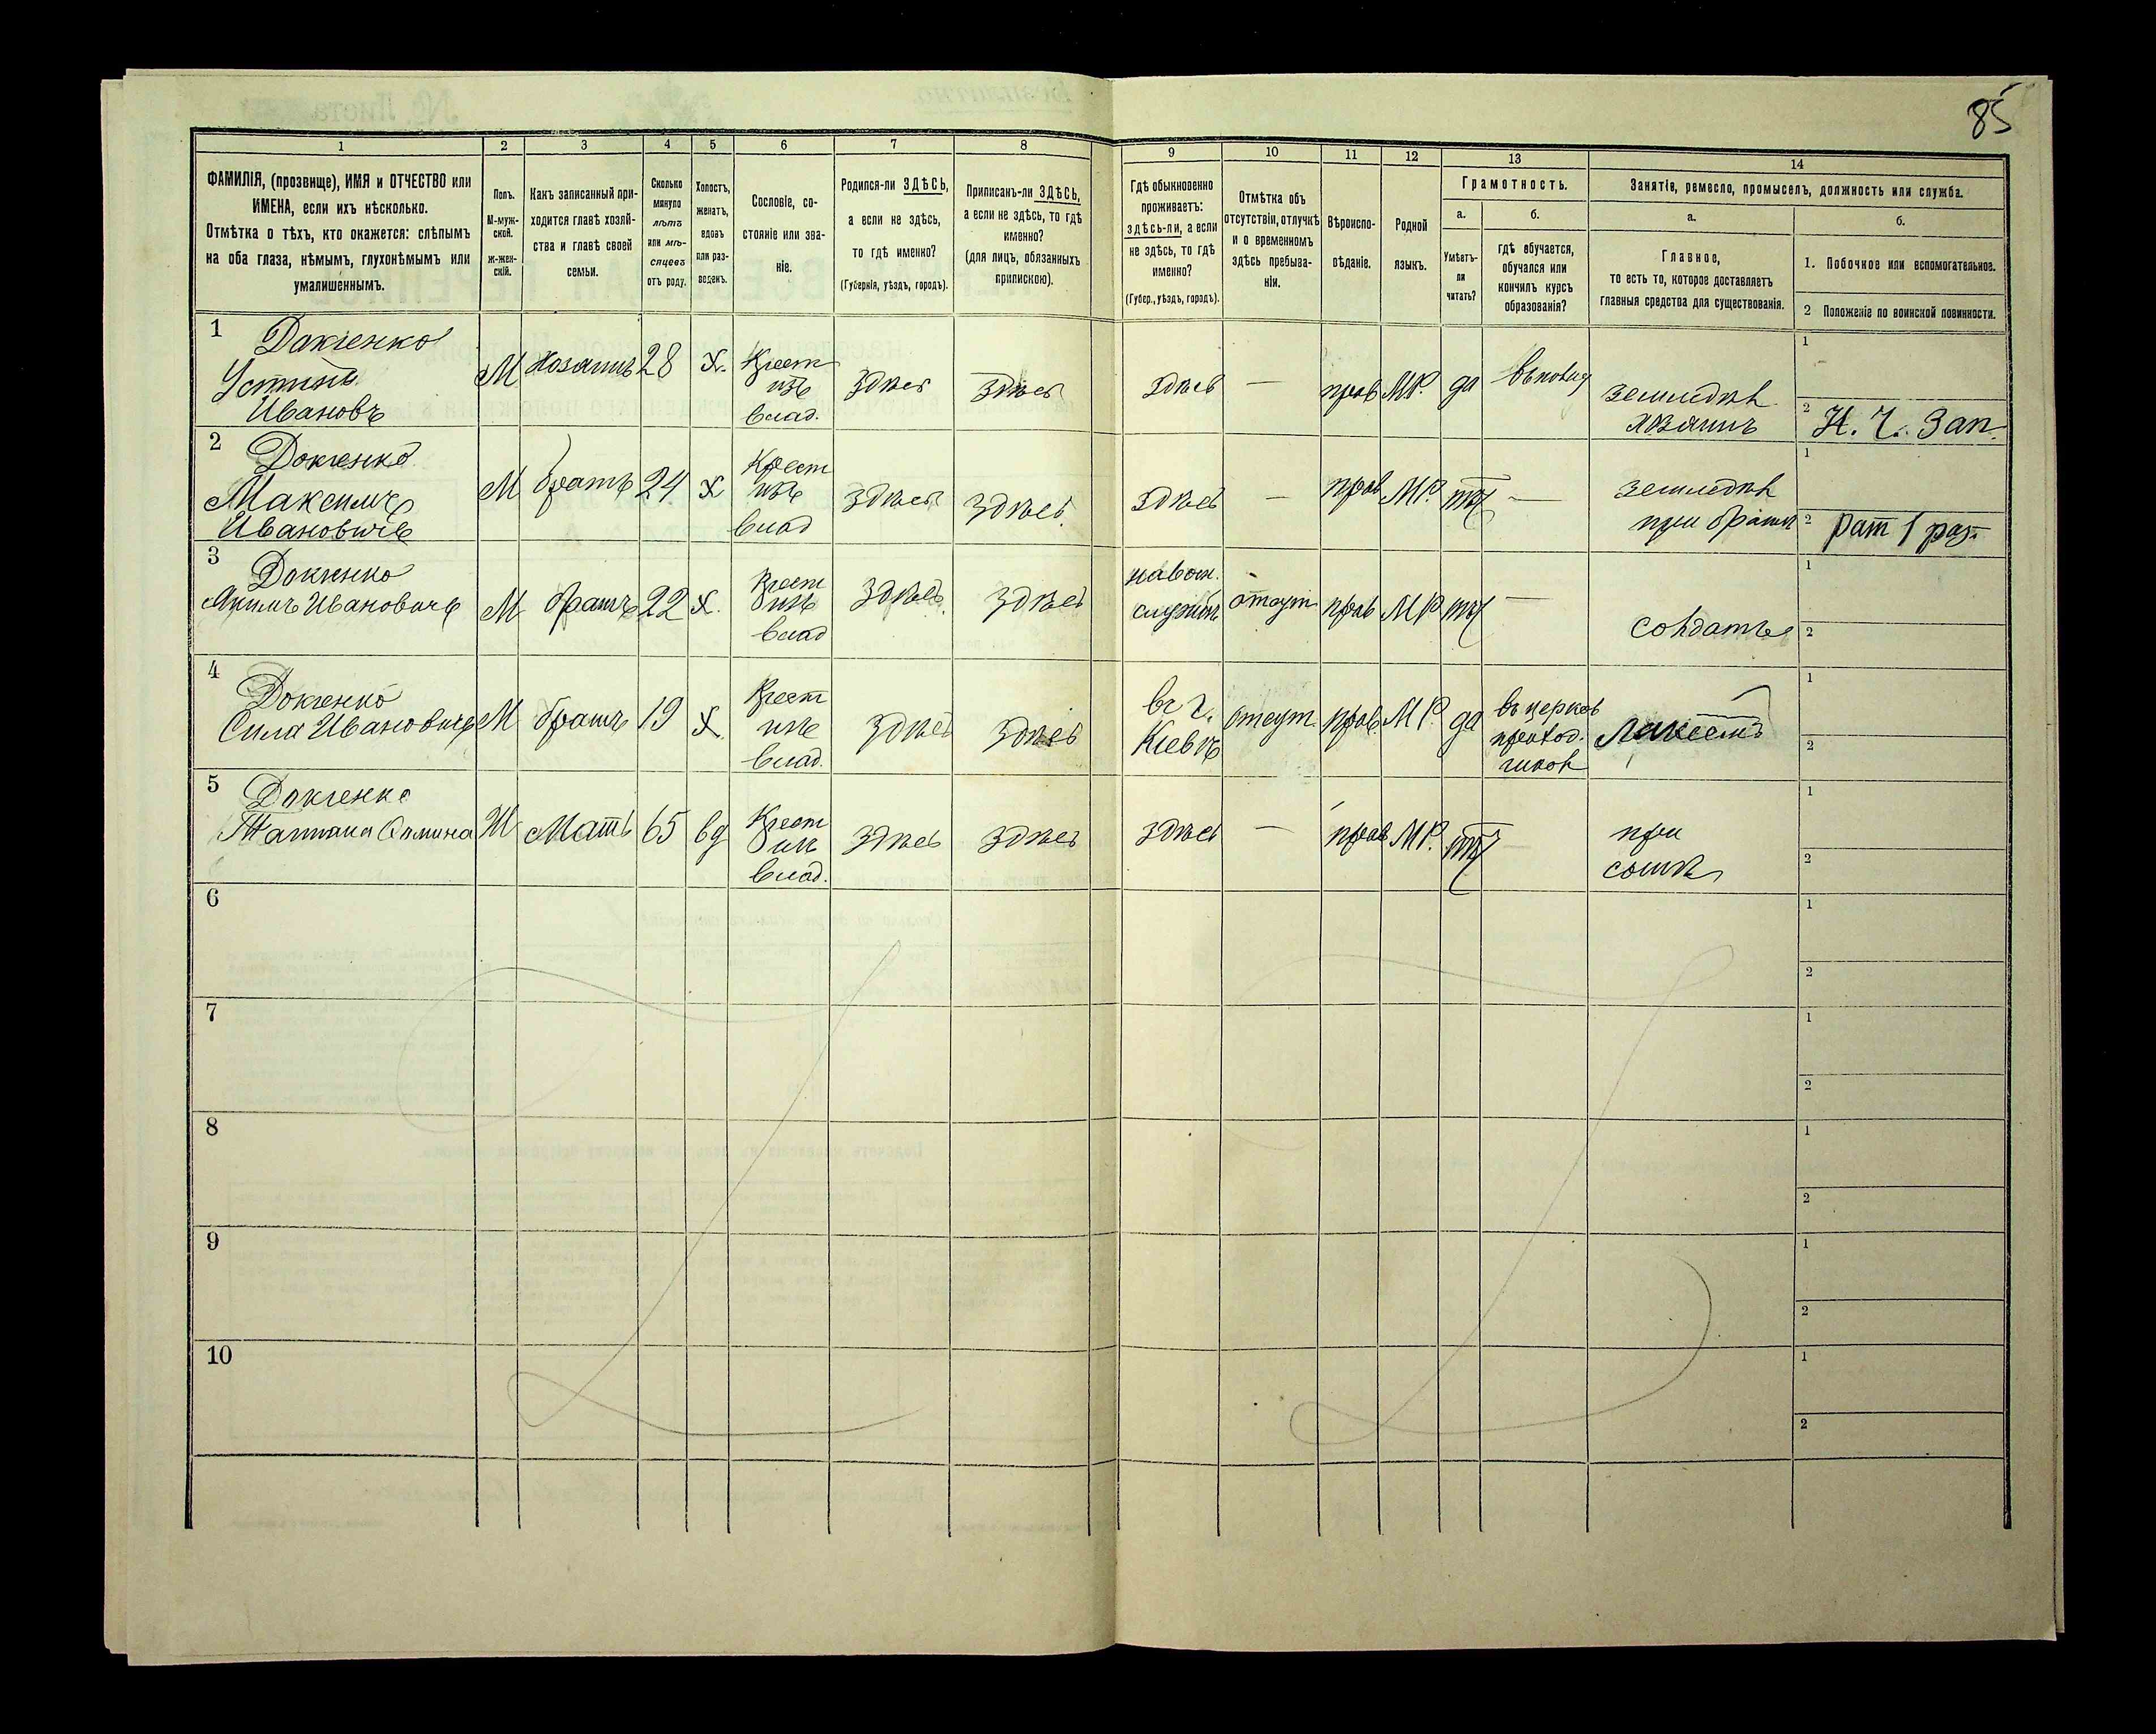 85
1 2 3 4 5 6 7 8 9 10 11 12 13 14
ФАМИЛІЯ, (прозвище), ИМЯ и ОТЧЕСТВО или
ИМЕНА, если ихъ нѣсколько.
Отмѣтка о тѣхъ, кто окажется: слѣпымъ
на оба глаза, нѣмымъ, глухонѣмымъ или
умалишеннымъ.
Полъ.
М-муж-
ской.
ж-жен-
скій.
Какъ записанный при-
ходится главѣ хозяй-
ства и главѣ своей
семьи.
Сколько
минуло
лѣтъ
или мѣ-
сяцевъ
отъ роду.
Холостъ,
женатъ,
вдовъ
или раз-
веденъ.
Сословіе, со-
стояніе или зва-
ніе.
Родился-ли ЗДѢСЬ,
а если не здѣсь,
то гдѣ именно?
(Губернія, уѣздъ, городъ).
Приписанъ-ли ЗДѢСЬ,
а если не здѣсь, то гдѣ
именно?
(для лицъ, обязанныхъ
припискою).
Гдѣ обыкновенно
проживаетъ:
здѣсь-ли, а если
не здѣсь, то гдѣ
именно?
(Губер., уѣздъ, городъ).
Отмѣтка объ
отсутствіи, отлучкѣ
и о временномъ
здѣсь пребыва-
ніи.
Вѣроиспо-
вѣданіе.
Родной
языкъ.
Грамотность.
а.
Умѣетъ-
ли
читать?
б.
гдѣ обучается,
обучался или
кончилъ курсъ
образованія?
Занятіе, ремесло, промыселъ, должность или служба.
а.
Главное,
то есть то, которое доставляетъ
главныя средства для существованія.
б.
1. Побочное или вспомогательное.
2 Положеніе по воинской повинности.
1
Докіенко
Устинъ
Ивановъ
М
Хозяинъ
28
х.
Крест
изъ
влад.
здѣсь
здѣсь
здѣсь
—
прав
МР.
да
земледѣл
хозяинъ
1
2 Н. Ч. Зап.
2
Докіенко
Максимъ
Ивановичъ
М
братъ
24
х
Крест
изъ
влад
здѣсь
здѣсь.
здѣсь
—
прав
МР.
—
земледѣл
при братѣ
1
2 рат 1 раз.
3
Докіенко
Акимъ Ивановичъ
М
братъ
22
х.
Крест
изъ
влад
здѣсь
здѣсь
на воен.
службѣ
отсут
прав
МР
—
солдатъ
1
2
4
Докіенко
Сила Ивановичъ
М
братъ
19
х.
Крест
изъ
влад.
здѣсь
здѣсь
въ г.
Кіевѣ
отсут
прав.
МР.
да
въ церков
приход.
школ
Лакеемъ
1
2
5
Докіенко
Татіана
Ж
Мать
65
вд
Крест
изъ
влад.
здѣсь
здѣсь
здѣсь
—
прав
МР.
—
при
сынѣ
1
2
6
1
2
7
1
2
8
1
2
9
1
2
10
1
2